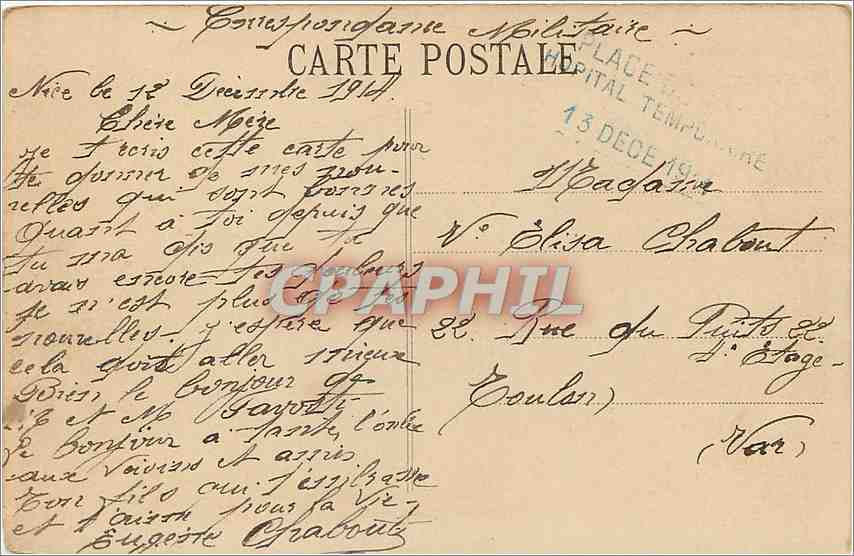 ~ Correspondance Militaire ~
CARTE POSTALE
PLACE
HOPITAL TEMPORAIRE
13 DECE 191
Nice le 12 Décembre 1914
Chère Mère
Je t'ecris cette carte pour
te donner de mes nou-
velles qui sont bonnes
Quant à toi depuis que
tu ma dis que tu
avais encore tes douleurs
je n'est plus de tes
nouvelles. j'espère que
cela doit aller mieux
Bien le bonjour de
et M
le bonjour à tante, l'oncle
aux voisins et amis
Ton fils qui t'embrasse
et t'aime pour la vie
Eugène Chabout
Madame
Ve Elisa Chabout
22. Rue du Puits 22.
Etage-
Toulon
(Var)
CPAPHIL